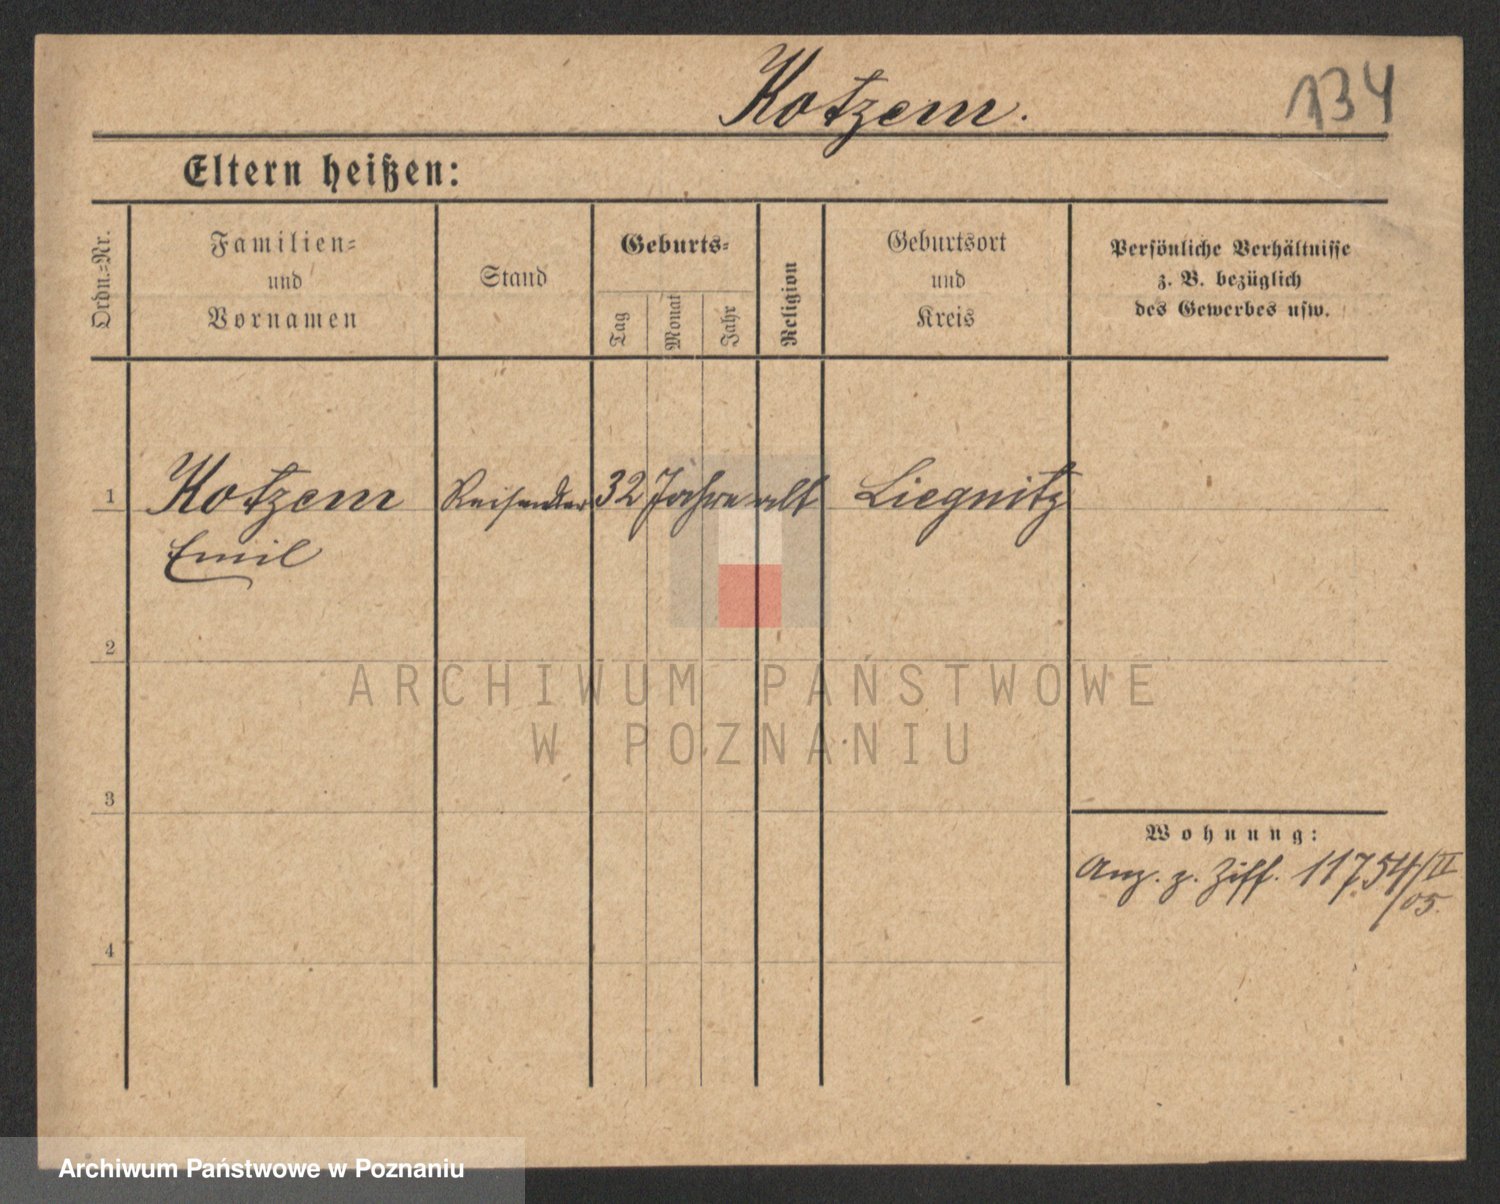 Kotzem.
134
Eltern heißen:
Ordn.=Nr.
Familien=
und
Vornamen
Stand
Geburts=
Tag
Monat
Jahr
Religion
Geburtsort
und
Kreis
Persönliche Verhältnisse
z. B. bezüglich
des Gewerbes usw.
1 Kotzem Reisender 32 Jahre alt Liegnitz
Emil
2
ARCHIWUM PAŃSTWOWE
W POZNANIU
3
Wohnung:
Anz. z. Ziff. 11754/II
/05.
4
Archiwum Państwowe w Poznaniu